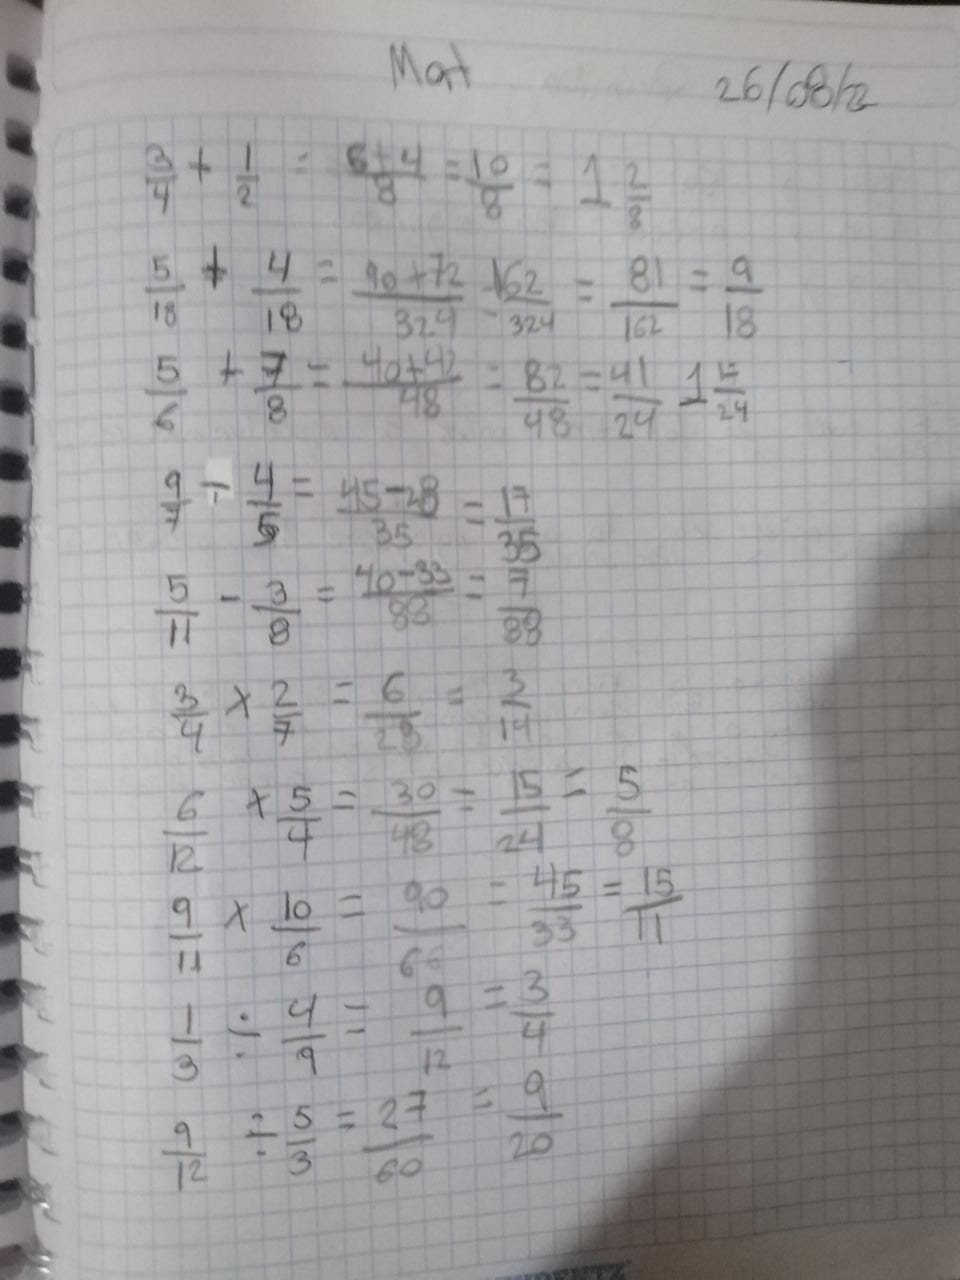 Mat 26/08/2
3/4 + 1/2 = 6+4/8 = 10/8 = 1 2/8
5/18 + 4/18 = 90+72/324 = 162/324 = 81/162 = 9/18
5/6 + 7/8 = 40+42/48 = 82/48 = 41/24 1 17/24
9/7 - 4/5 = 45-28/35 = 17/35
5/11 - 3/8 = 40-33/88 = 7/88
3/4 × 2/7 = 6/28 = 3/14
6/12 × 5/4 = 30/48 = 15/24 = 5/8
9/11 × 10/6 = 90/66 = 45/33 = 15/11
1/3 ÷ 4/9 = 9/12 = 3/4
9/12 ÷ 5/3 = 27/60 = 9/20